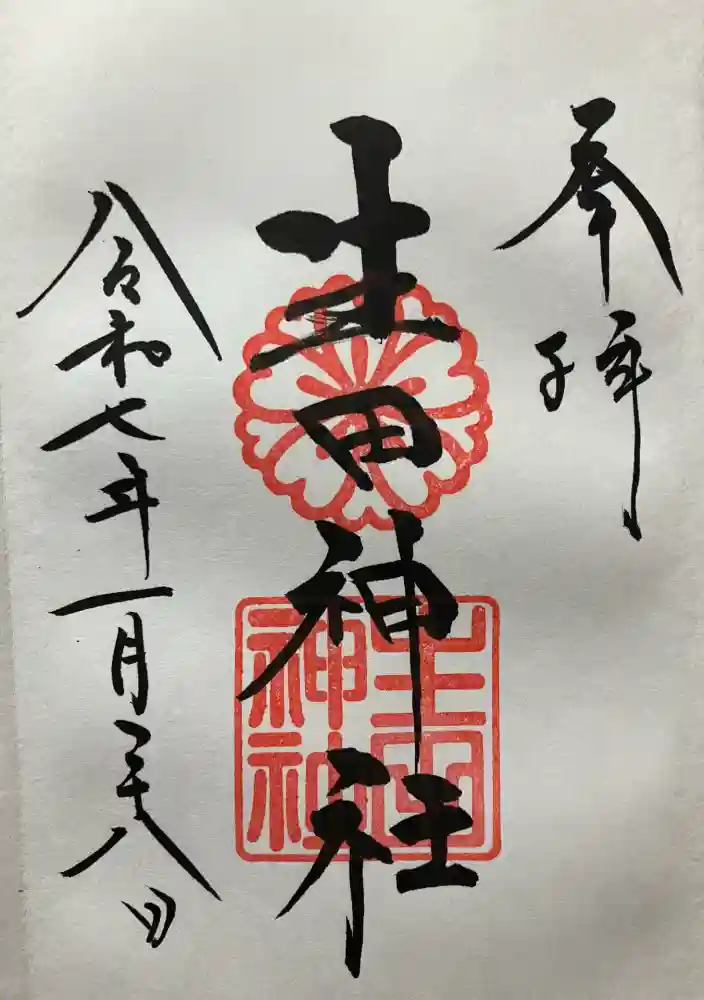 奉拝
生田神社
令和七年一月二十八日
生田
神社